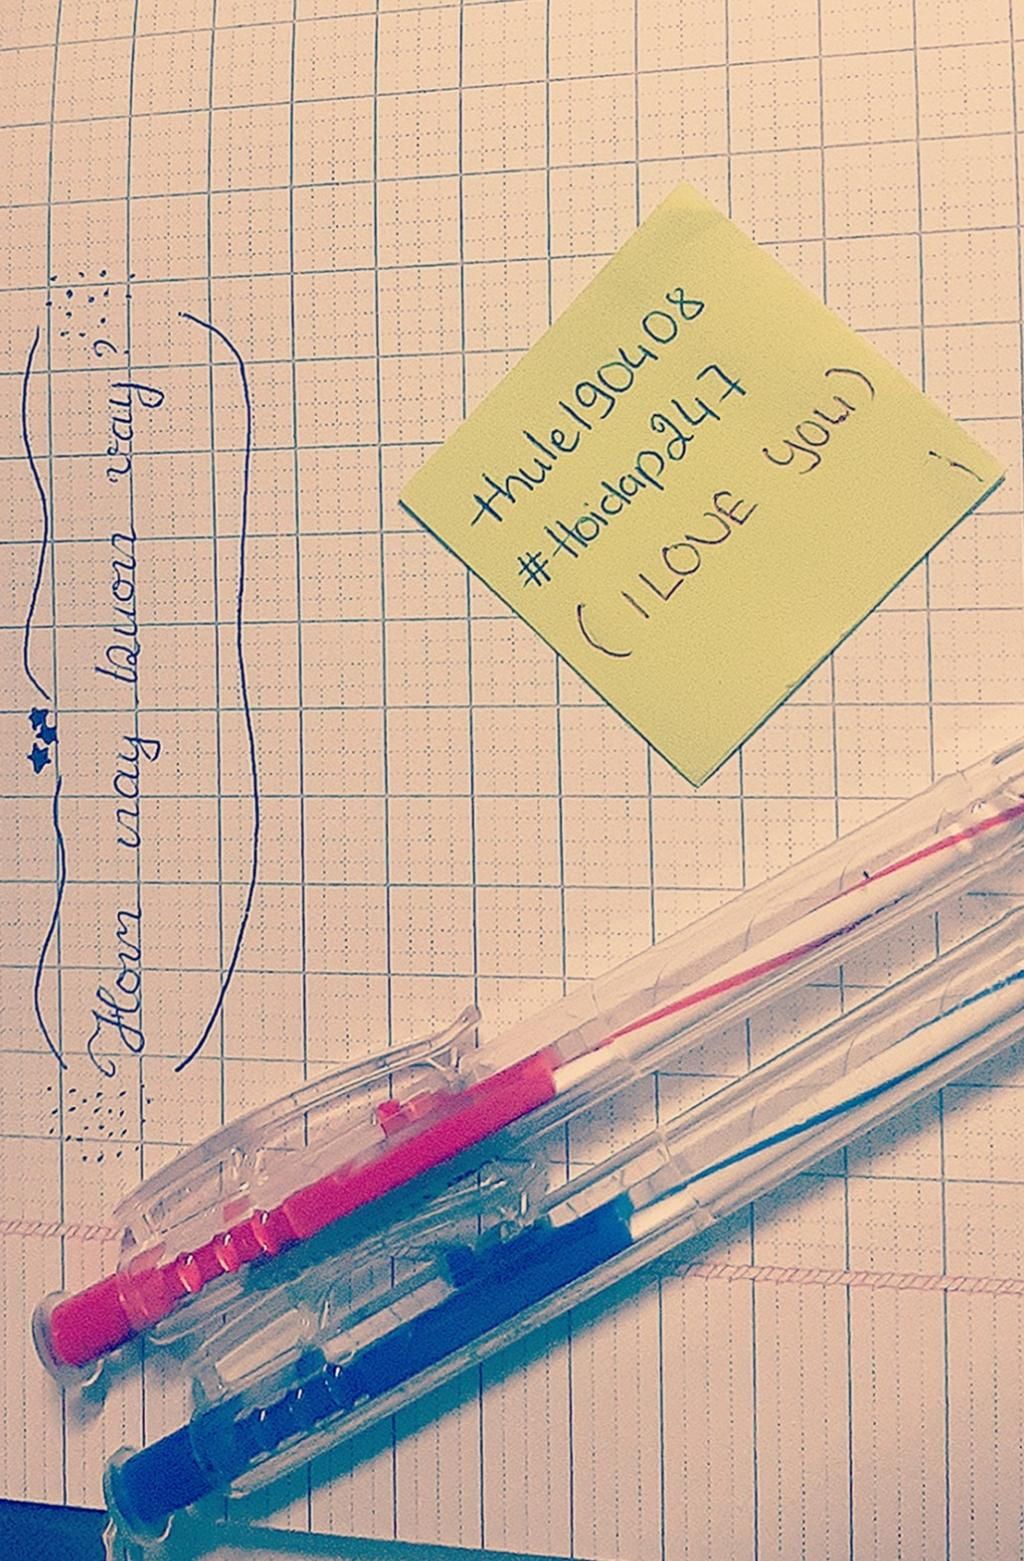 Hom nay buon vay ?
thule190408
#Hoidap247
( I LOVE you )